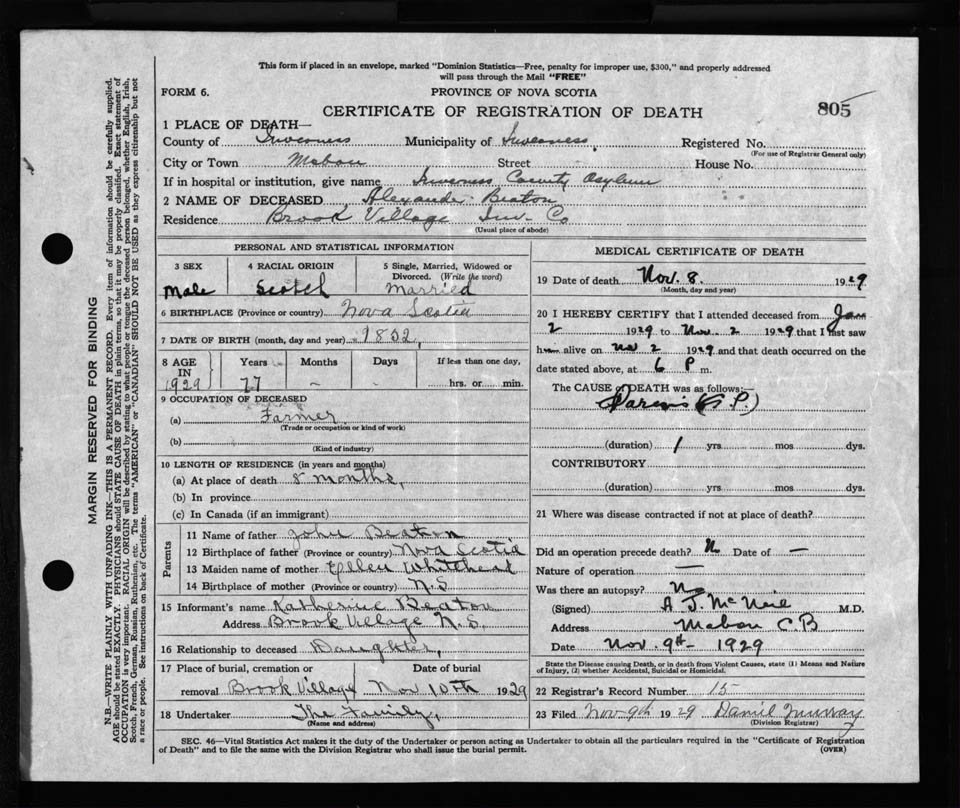 This form if placed in an envelope, marked "Dominion Statistics—Free, penalty for improper use, $300," and properly addressed
will pass through the Mail "FREE"
FORM 6.
PROVINCE OF NOVA SCOTIA
CERTIFICATE OF REGISTRATION OF DEATH
805
1 PLACE OF DEATH—
County of Inverness Municipality of Inverness, Registered No.
(For use of Registrar General only)
City or Town Mabou Street House No.
If in hospital or institution, give name Inverness County Asylum
2 NAME OF DECEASED Alexander Beaton
Residence Brook Village Inv. Co
(Usual place of abode)
PERSONAL AND STATISTICAL INFORMATION
3 SEX 4 RACIAL ORIGIN 5 Single, Married, Widowed or
Divorced. (Write the word)
Male Scotch Married
6 BIRTHPLACE (Province or country) Nova Scotia
7 DATE OF BIRTH (month, day and year) 1852,
8 AGE Years Months Days If less than one day,
IN
1929 77 – hrs. or min.
9 OCCUPATION OF DECEASED
(a) Farmer
(Trade or occupation or kind of work)
(b)
(Kind of industry)
10 LENGTH OF RESIDENCE (in years and months)
(a) At place of death 8 months,
(b) In province
(c) In Canada (if an immigrant)
Parents
11 Name of father John Beaton
12 Birthplace of father (Province or country) Nova Scotia
13 Maiden name of mother Ellen Whitehead
14 Birthplace of mother (Province or country) N.S
15 Informant's name Katherine Beaton
Address Brook Village N.S.
16 Relationship to deceased Daughter,
17 Place of burial, cremation or Date of burial
removal Brook Village Nov 10th 1929
18 Undertaker The Family,
(Name and address)
MEDICAL CERTIFICATE OF DEATH
19 Date of death Nov. 8. 1929
(Month, day and year)
20 I HEREBY CERTIFY that I attended deceased from Jan
2 1929 to Nov. 2 1929 that I last saw
him alive on Nov 2 1929 and that death occurred on the
date stated above, at 6 P m.
The CAUSE OF DEATH was as follows:—
Paresis (G.P.)
(duration) 1 yrs mos dys.
CONTRIBUTORY
(duration) yrs. mos dys.
21 Where was disease contracted if not at place of death?
Did an operation precede death? N Date of —
Nature of operation —
Was there an autopsy? No
(Signed) A J. McNeil M.D.
Address Mabou C.B
Date Nov. 9th - 1929
State the Disease causing Death, or in death from Violent Causes, state (1) Means and Nature
of Injury, (2) whether Accidental, Suicidal or Homicidal.
22 Registrar's Record Number 15
23 Filed Nov 9th 1929 Daniel Murray
(Division Registrar)
SEC. 46—Vital Statistics Act makes it the duty of the Undertaker or person acting as Undertaker to obtain all the particulars required in the "Certificate of Registration
of Death" and to file the same with the Division Registrar who shall issue the burial permit.
(OVER)
MARGIN RESERVED FOR BINDING
N.B.—WRITE PLAINLY WITH UNFADING INK—THIS IS A PERMANENT RECORD. Every item of information should be carefully supplied.
AGE should be stated EXACTLY. PHYSICIANS should STATE CAUSE OF DEATH in plain terms, so that it may be properly classified. Exact statement of
OCCUPATION is very important. RACIAL ORIGIN will be described by stating to what people or tongue the deceased person belonged, whether English, Irish,
Scotch, French, German, Russian, Ruthenian, etc. The terms "AMERICAN" or "CANADIAN" SHOULD NOT BE USED as they express citizenship but not
a race or people. See instructions on back of Certificate.